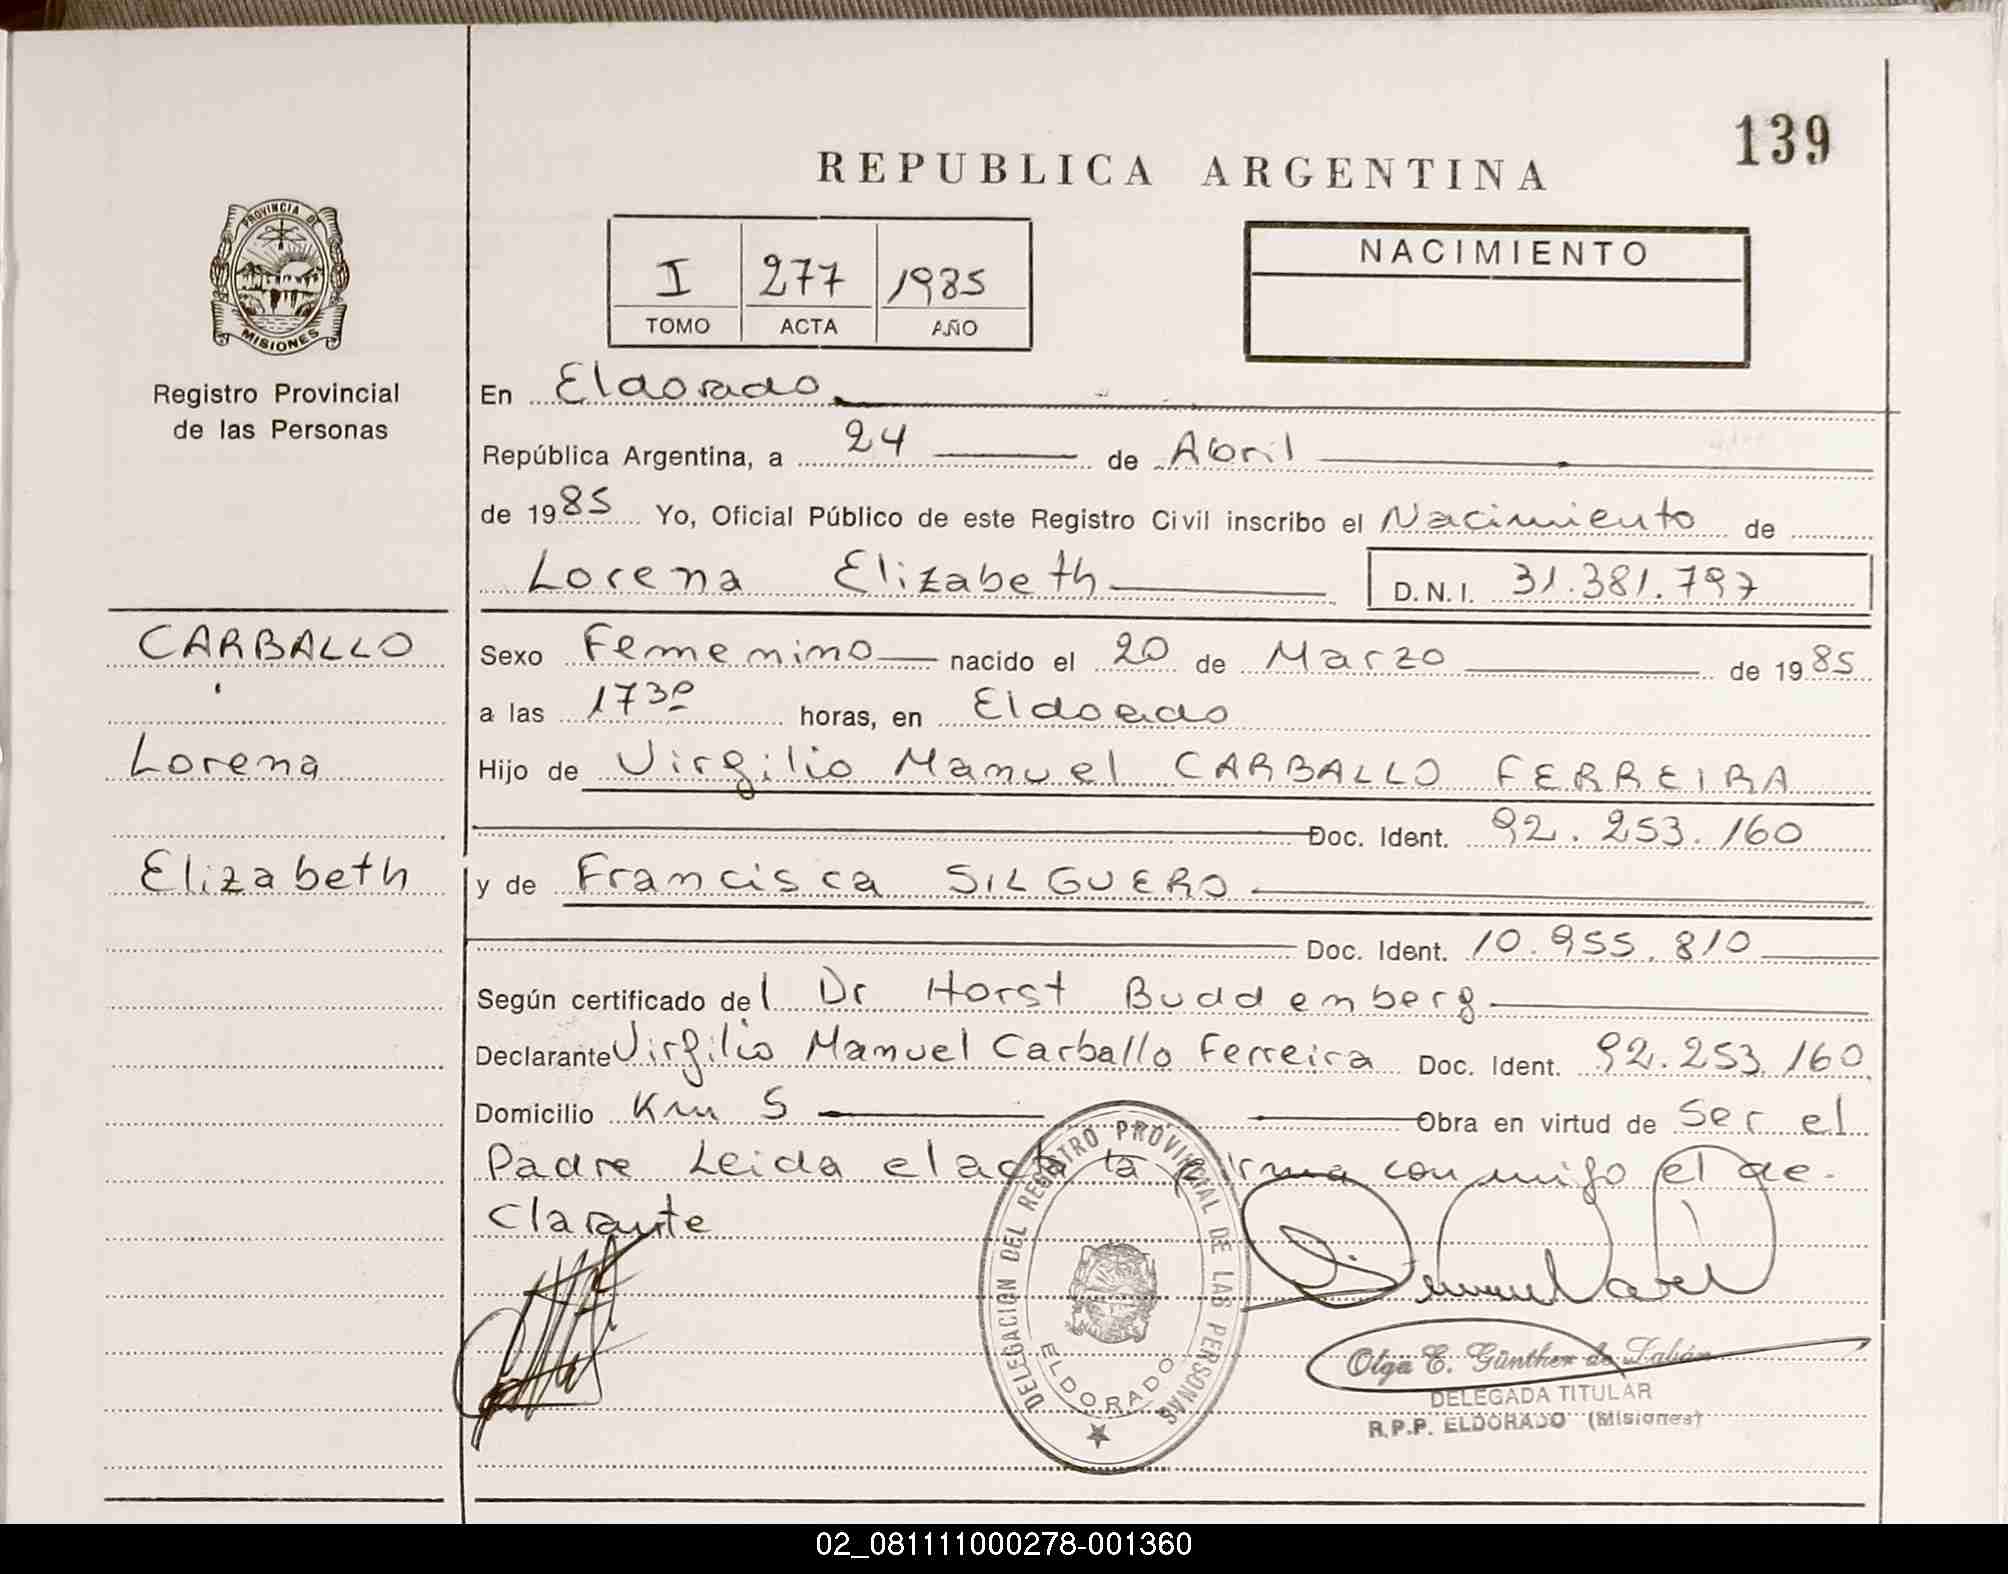 139
REPUBLICA ARGENTINA
PROVINCIA DE
MISIONES
I 277 1985
TOMO ACTA AÑO
NACIMIENTO
Registro Provincial
de las Personas
En Eldorado
República Argentina, a 24 de Abril
de 1985 Yo, Oficial Público de este Registro Civil inscribo el Nacimiento de
Lorena Elizabeth D.N.I. 31.381.797
CARBALLO
Lorena
Elizabeth
Sexo Femenino nacido el 20 de Marzo de 1985
a las 17³⁰ horas, en Eldorado
Hijo de Virgilio Manuel CARBALLO FERREIRA
Doc. Ident. 92.253.160
y de Francisca SILGUERO
Doc. Ident. 10.955.810
Según certificado del Dr Horst Buddemberg
Declarante Virgilio Manuel Carballo Ferreira Doc. Ident. 92.253.160
Domicilio Km 5 Obra en virtud de ser el
Padre Leida el acta la firma conmigo el de-
clarante
DELEGACION DEL REGISTRO PROVINCIAL DE LAS PERSONAS
ELDORADO
Olga E. Günther de
DELEGADA TITULAR
R.P.P. ELDORADO (Misiones)
02_081111000278-001360